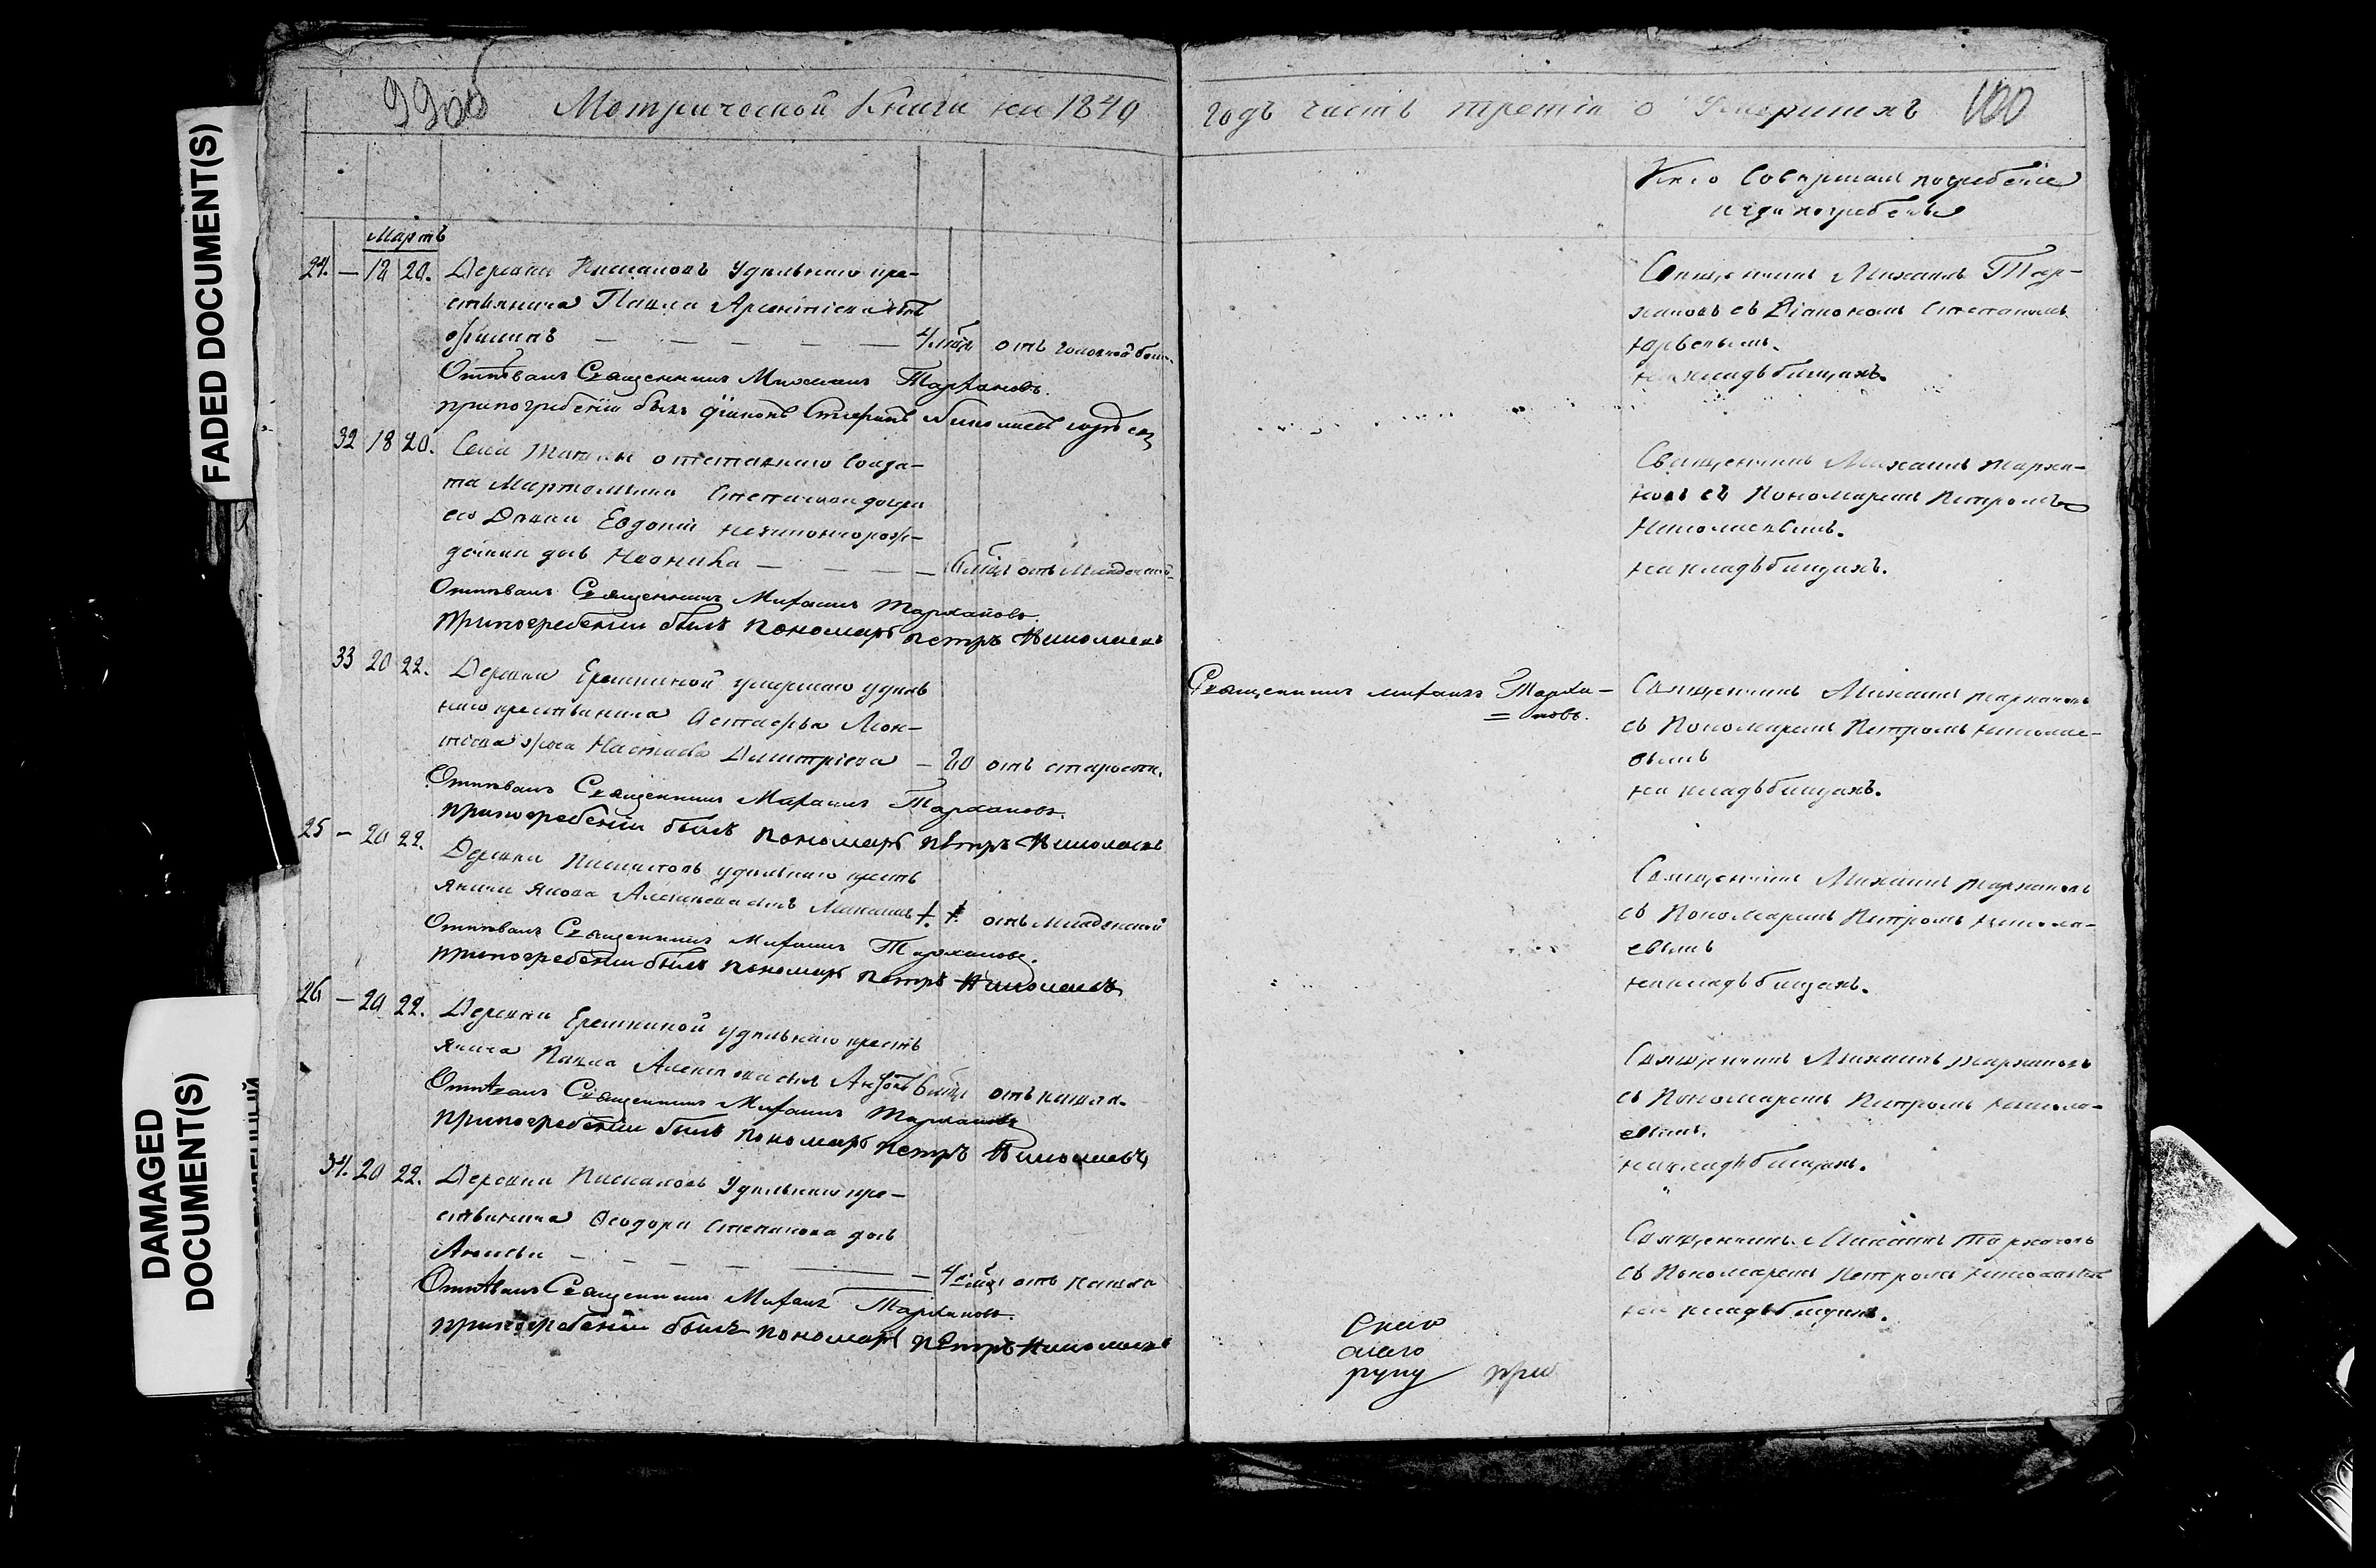 FADED DOCUMENT(S)
DAMAGED
DOCUMENT(S)
99об
Метрической Книги на 1840
годъ часть третія о Умершихъ
100
Кто Совершалъ погребеніе
и гдѣ погребены
Мартъ
24. — 18 20. Деревни Удѣльнаго кре-
стьянина Павла Арсентіева сынъ
Филипъ — — — — — 4 мѣц. отъ головной боли
Отпѣвалъ Священникъ Михаилъ Тархановъ.
при погребеніи былъ діаконъ Стефанъ
32 18 20. Села отставнаго Солда-
та Степанова дочери
его Дѣвки Евдокіи незаконнорож-
денная дочь — — — — 6 мѣц. отъ младенской
Отпѣвалъ Священникъ Михаилъ Тархановъ.
При погребеніи былъ пономарь петръ Николаевъ
33 20 22. Деревни Ерешкиной умершаго удѣль
наго крестьянина Астафья Леон-
тіева жена Настасья Димитріева — 80 отъ старости.
Отпѣвалъ Священникъ Михаилъ Тархановъ.
при погребеніи былъ пономарь петръ Николаевъ
25 — 20 22. Деревни удѣльнаго кресть
янина Якова Алексѣева сынъ отъ младенской
Отпѣвалъ Священникъ Михаилъ Тархановъ.
при погребеніи былъ пономарь петръ Николаевъ
26 — 20 22. Деревни Ерешкиной удѣльнаго кресть
янина Павла сынъ 6 мѣц. отъ кашля.
Отпѣвалъ Священникъ Михаилъ Тархановъ
при погребеніи былъ пономарь петръ Николаевъ
34. 20 22. Деревни Удѣльнаго кре-
стьянина Ѳеодора Степанова дочь
— — — — — 4 мѣц. отъ кашля
Отпѣвалъ Священникъ Михаилъ Тархановъ.
при погребеніи былъ пономарь петръ Николаевъ
Священникъ Михаилъ Тар-
хановъ съ Діакономъ Стефаномъ
на кладьбищахъ.
Священникъ Михаилъ Тарха-
новъ съ Пономаремъ Петромъ
Николаевымъ.
на кладьбищахъ.
Священникъ михаилъ Тарха-
= новъ.
Священникъ Михаилъ Тархановъ
съ Пономаремъ Петромъ Николае-
вымъ
на кладьбищахъ.
Священникъ Михаилъ Тархановъ
съ Пономаремъ Петромъ Никола-
евымъ
на кладьбищахъ.
Священникъ Михаилъ Тархановъ
съ Пономаремъ Петромъ Никола-
евымъ.
на кладьбищахъ.
Священникъ Михаилъ Тархановъ
съ Пономаремъ Петромъ Николаевымъ
на кладьбищахъ.
руку при